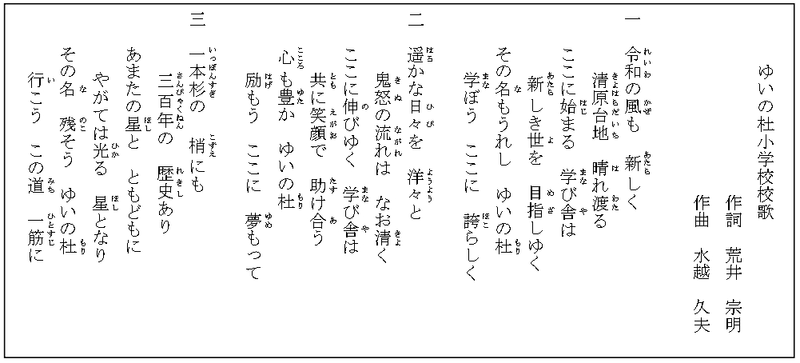 ゆいの杜小学校校歌
作詞　荒井　宗明
作曲　水越　久夫
一　令和の風も　新しく
清原台地　晴れ渡る
ここに始まる　学び舎は
新しき世を　目指しゆく
その名もうれし　ゆいの杜
学ぼう　ここに　誇らしく
二　遥かな日々を　洋々と
鬼怒の流れは　なお清く
ここに伸びゆく　学び舎は
共に笑顔で　助け合う
心も豊か　ゆいの杜
励もう　ここに　夢もって
三　一本杉の　梢にも
三百年の　歴史あり
あまたの星と　ともどもに
やがては光る　星となり
その名　残そう　ゆいの杜
行こう　この道　一筋に